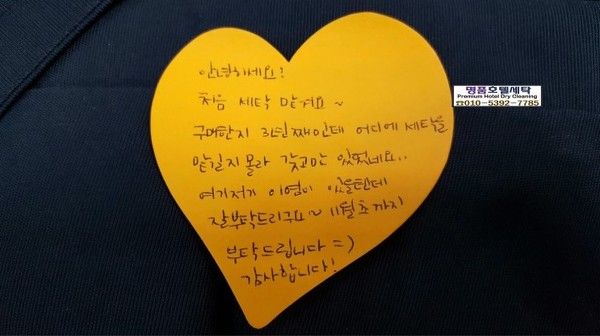 안녕하세요!
처음 세탁 맡겨요~
구매한지 하린째인데 어디에 세탁을
맡길지 몰라 갖고만 있었네요..
여기저기 이염이 있을텐데
잘부탁드리구요~ 11월초까지
부탁드립니다 =)
감사합니다!
명품호텔세탁
Premium Hotel Dry Cleaning
☎010-5392-7785